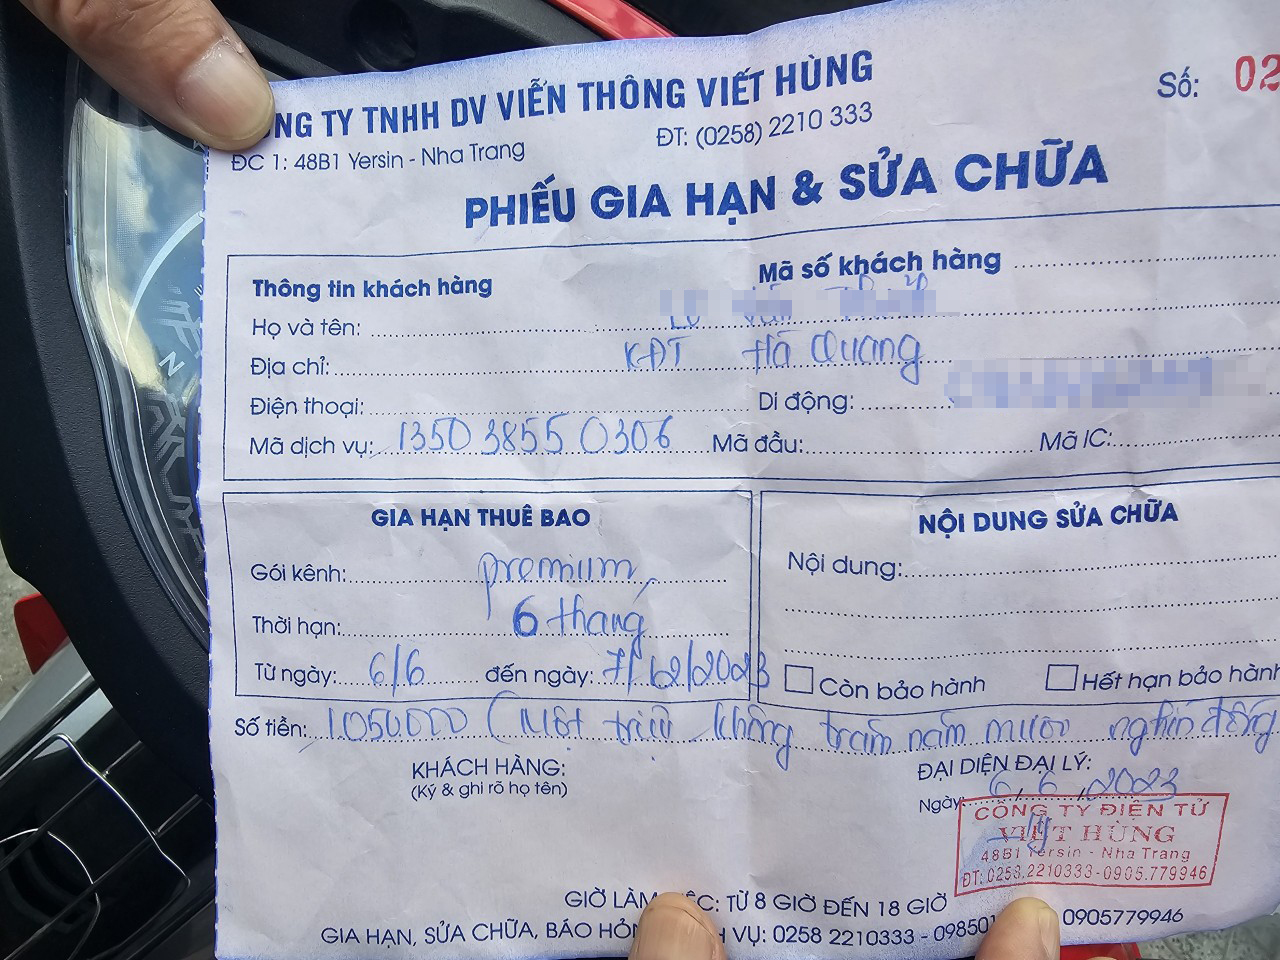 NG TY TNHH DV VIỄN THÔNG VIẾT HÙNG
Số: 02
ĐC 1: 48B1 Yersin - Nha Trang ĐT: (0258) 2210 333
PHIẾU GIA HẠN & SỬA CHỮA
Thông tin khách hàng Mã số khách hàng
Họ và tên:
Địa chỉ: KĐT Hà Quang
Điện thoại: Di động:
Mã dịch vụ: 135038550306 Mã đầu: Mã IC:
GIA HẠN THUÊ BAO
Gói kênh: premium
Thời hạn: 6 tháng
Từ ngày: 6/6 đến ngày: 7/12/2023
NỘI DUNG SỬA CHỮA
Nội dung:
Còn bảo hành Hết hạn bảo hành
Số tiền: 1050000 (Một triệu không trăm năm mươi nghìn đồng
KHÁCH HÀNG:
(Ký & ghi rõ họ tên)
ĐẠI DIỆN ĐẠI LÝ:
Ngày 6/6/2023
CÔNG TY ĐIỆN TỬ
VIẾT HÙNG
48B1 Yersin - Nha Trang
ĐT: 0258.2210333-0905.779946
GIỜ LÀM VIỆC: TỪ 8 GIỜ ĐẾN 18 GIỜ
GIA HẠN, SỬA CHỮA, BÁO HỎNG VỤ: 0258 2210333 - 09850 0905779946